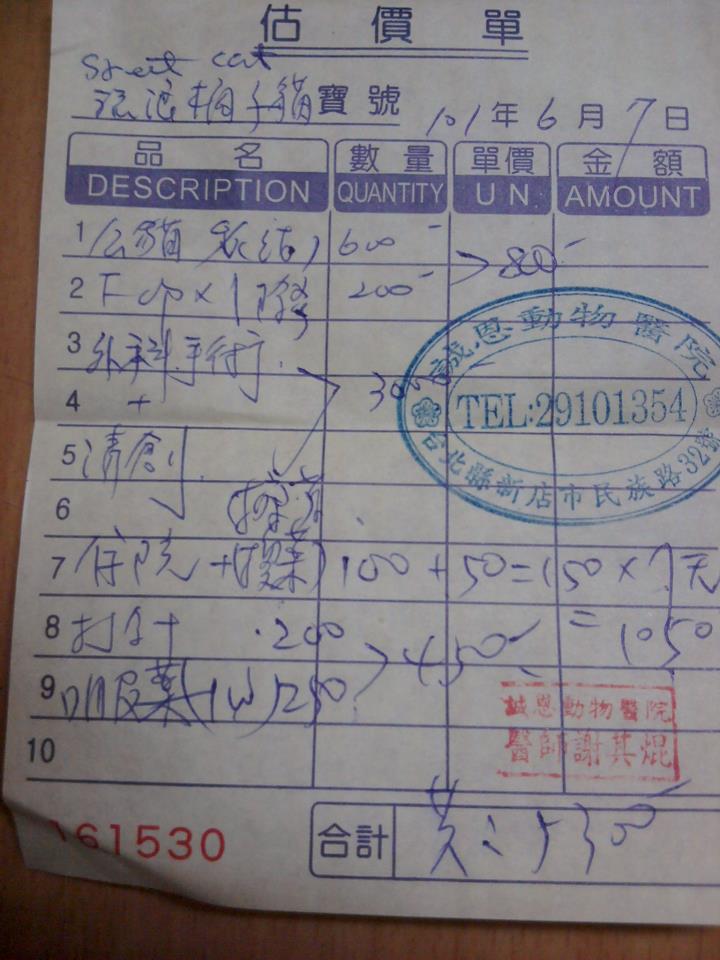 估價單
Street cat
流浪橘子貓寶號 101年6月7日
品名 數量 單價 金額
DESCRIPTION QUANTITY U N AMOUNT
1 公貓(結) 600 >800
2 ×1 200
3 外科手術 3000
4 +
5 清創
6
7 住院+(換藥) 100+50=150×7天
8 打針 200 >450 =1050
9 口服藥(1W) 250
10
誠恩動物醫院
TEL:29101354
台北縣新店市民族路32號
誠恩動物醫院
醫師謝其焜
161530 合計 共:5300